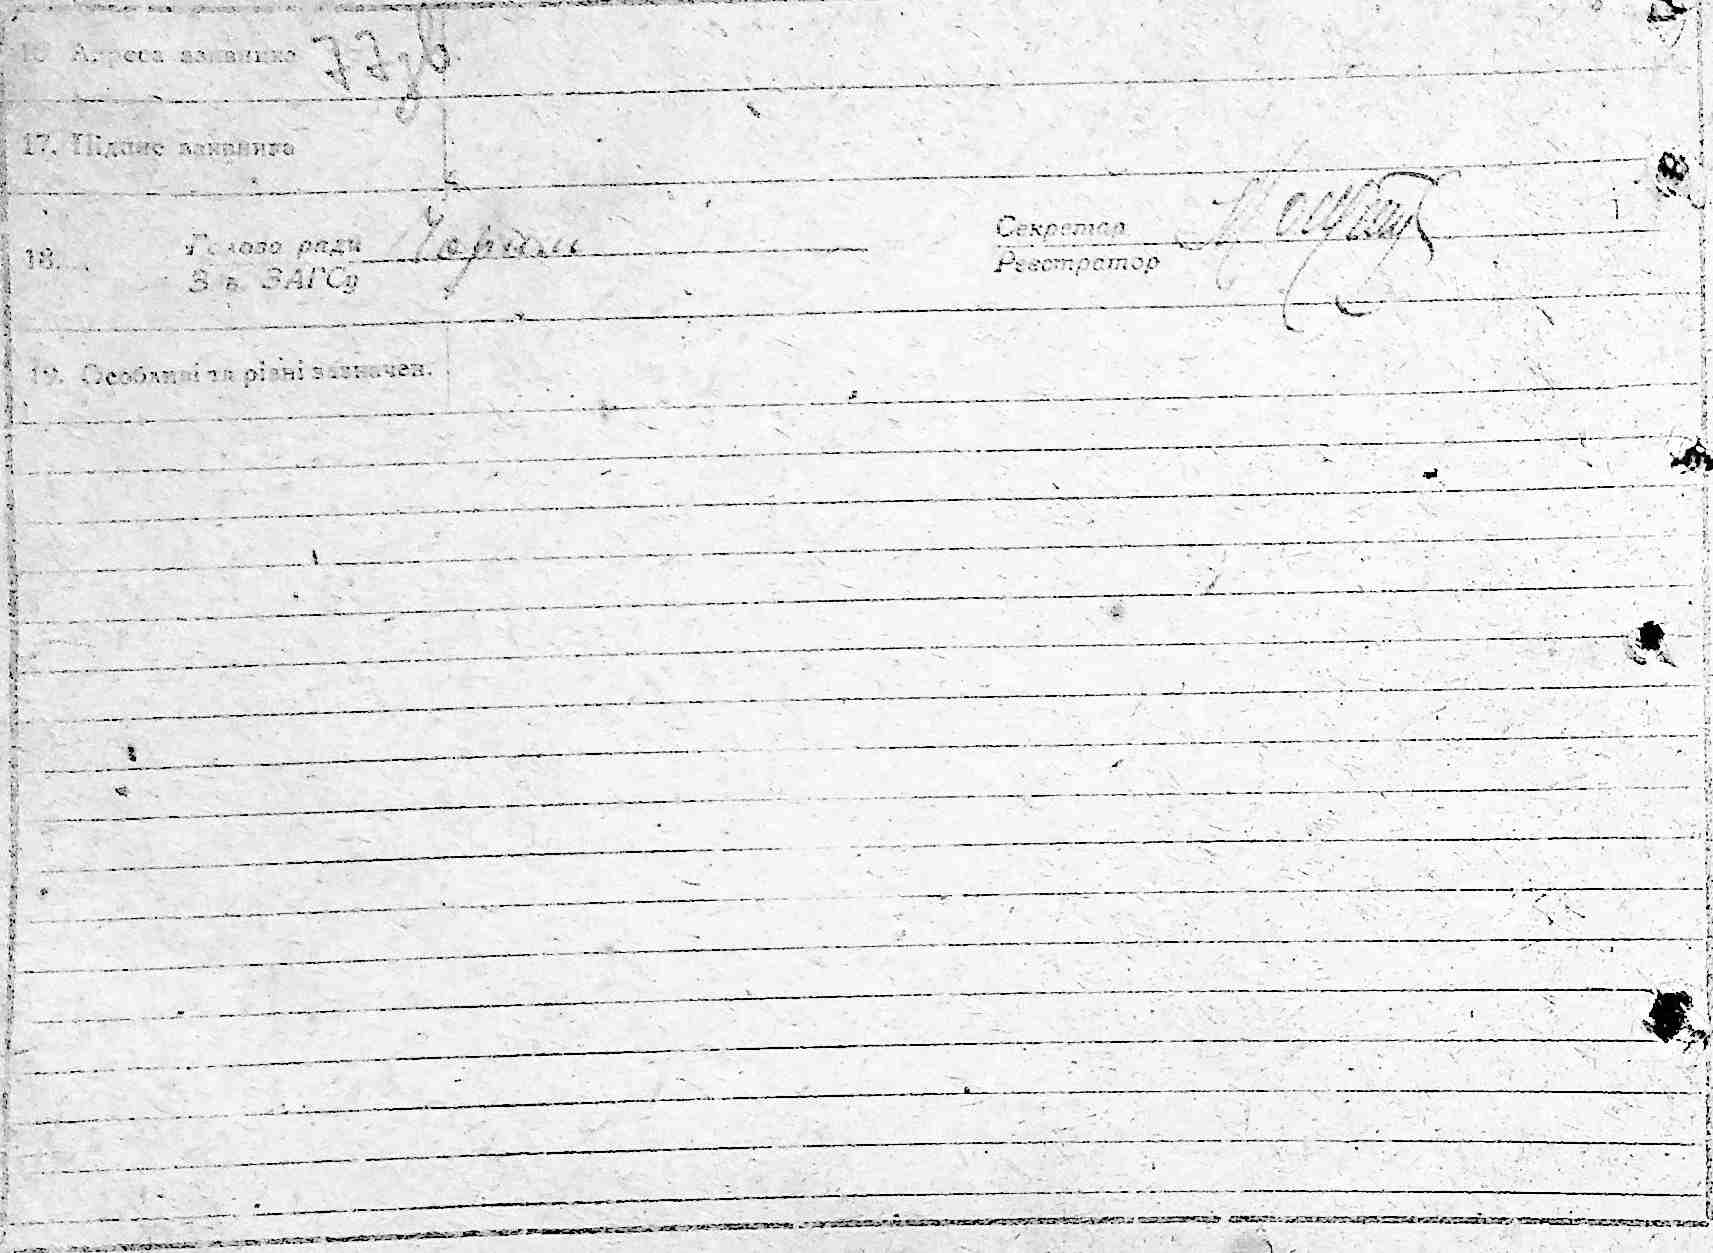 16 Адреса заявника
17. Підпис заявника
18. Голова ради Секретар
Зав. ЗАГСу Реєстратор
19. Особливі та різні зазначен.